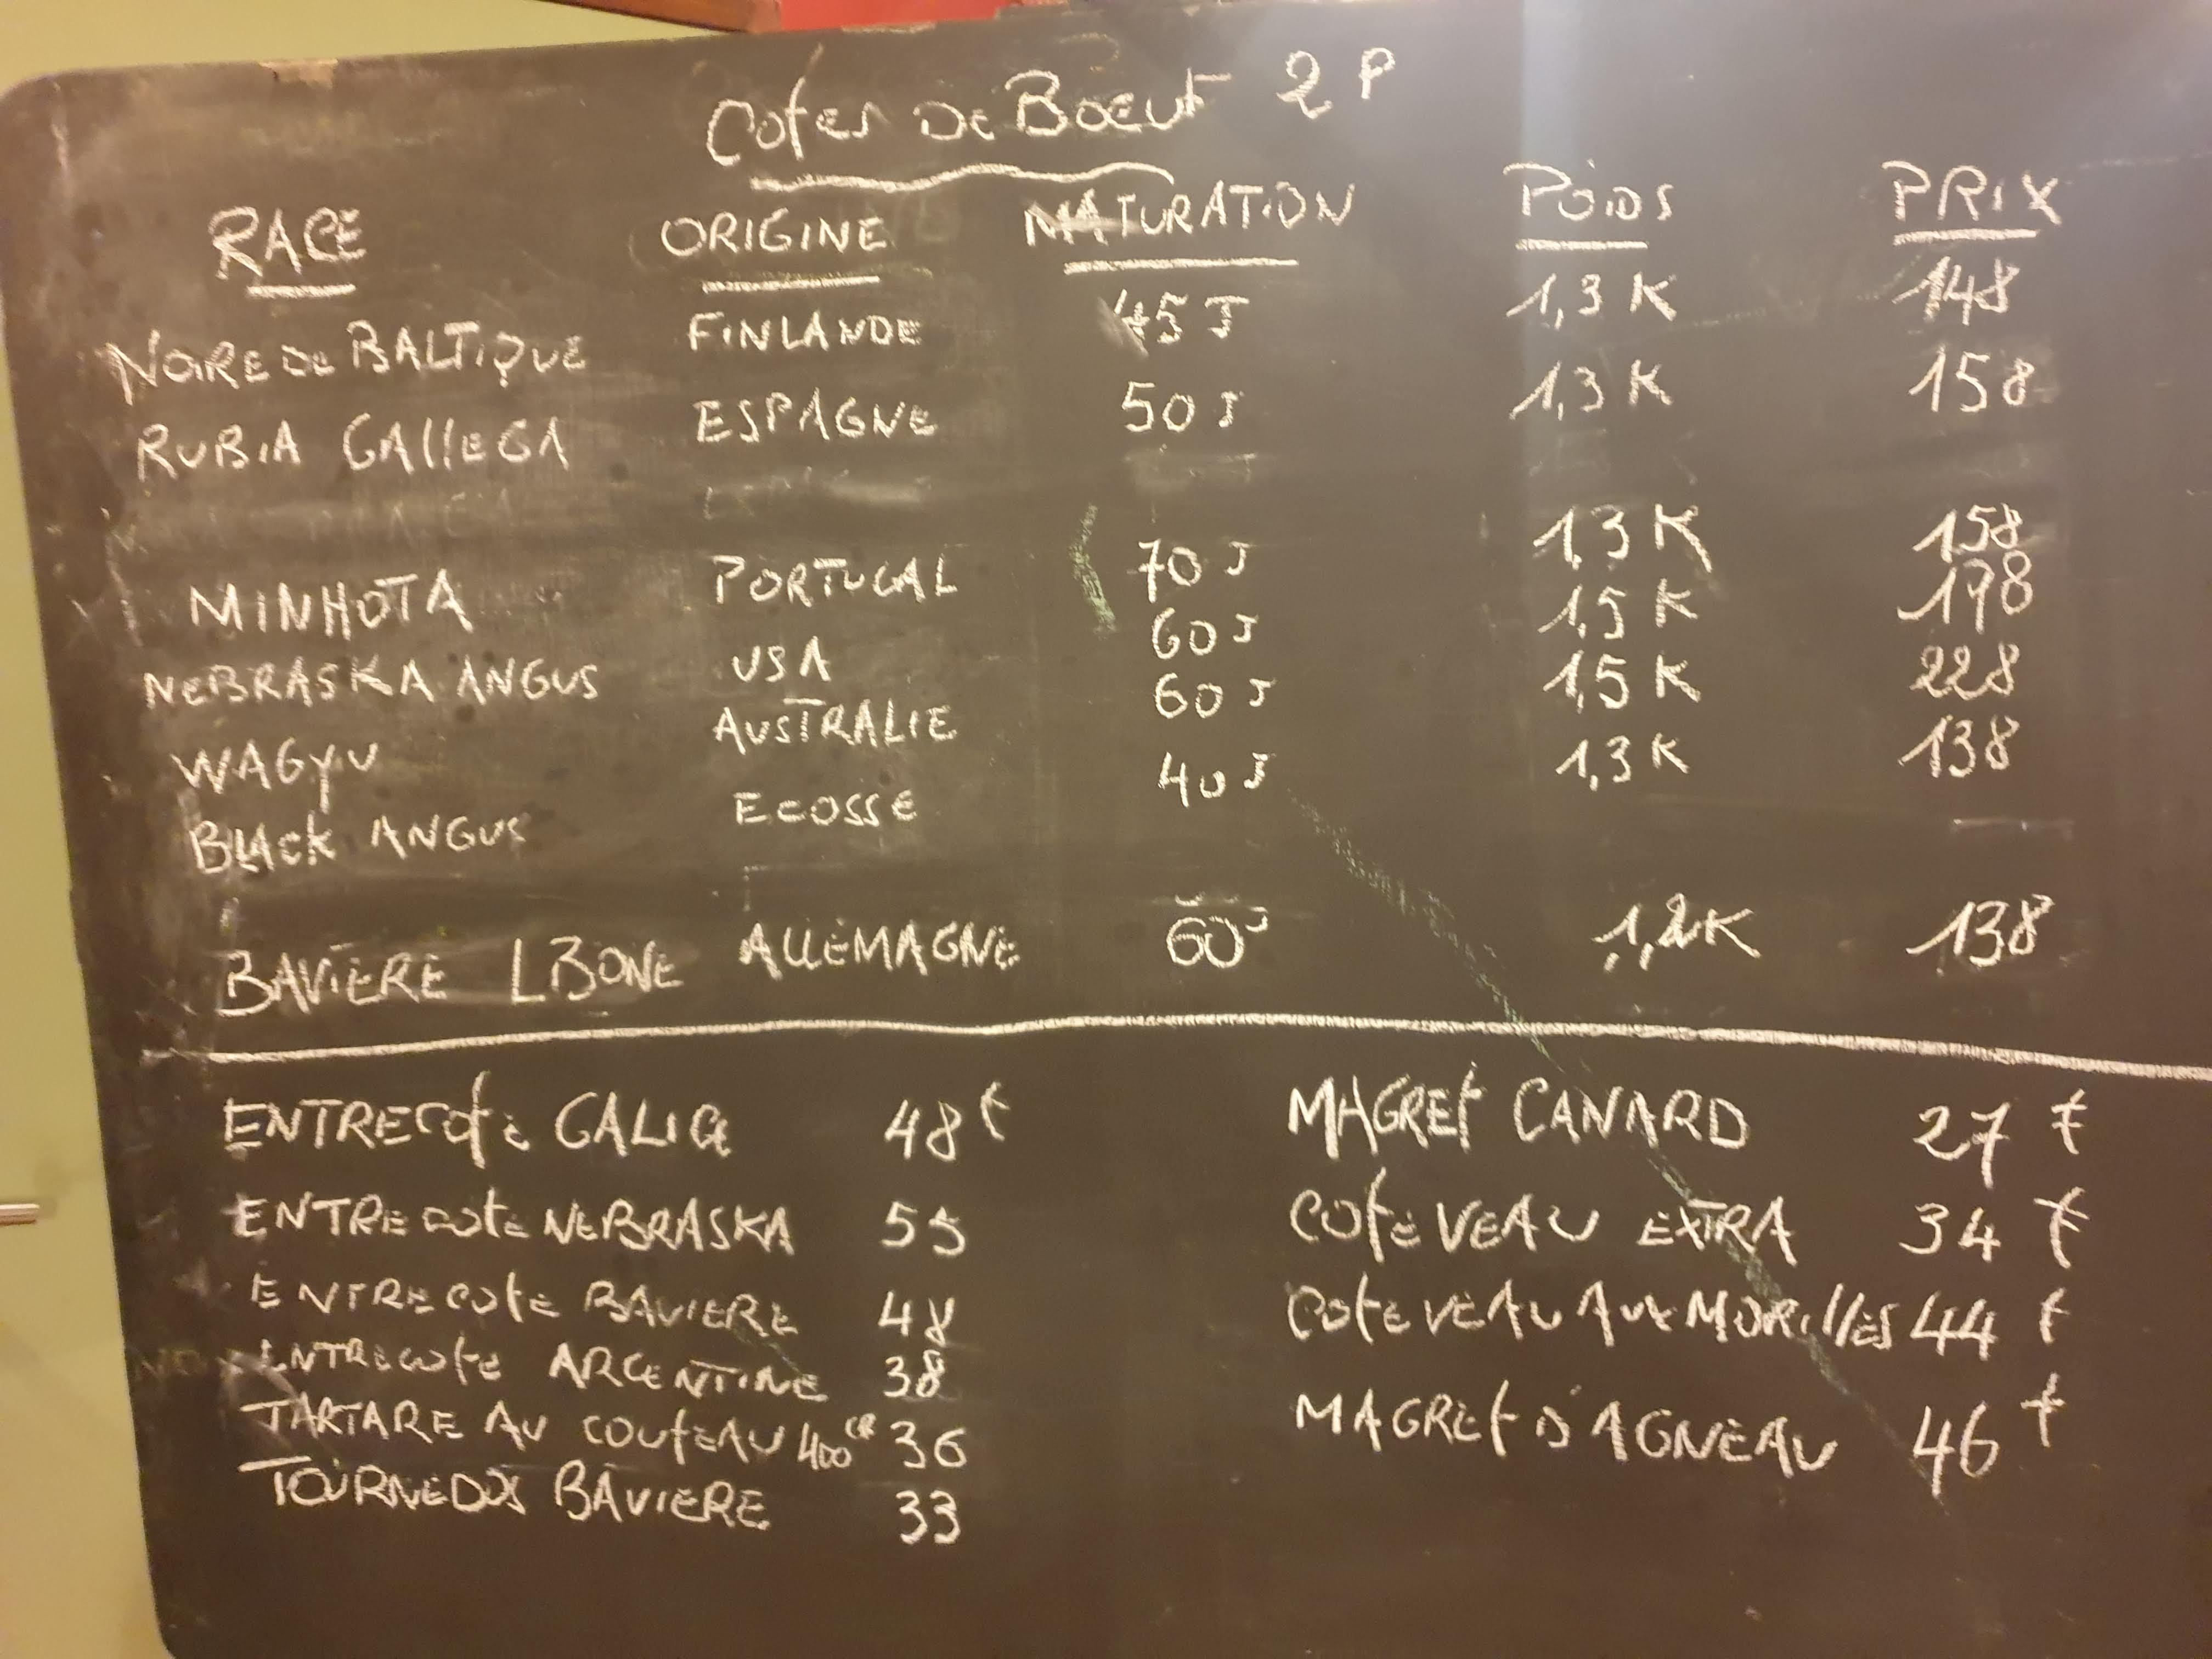 Cotes De Boeuf 2 P
RACE ORIGINE MATURATION POIDS PRIX
NOIRE De BALTIQUE FINLANDE 45 J 1,3 K 148
RUBIA GALLEGA ESPAGNE 50 J 1,3 K 158
MINHOTA PORTUGAL 70 J 1,3 K 158
NEBRASKA ANGUS USA 60 J 1,5 K 198
WAGYU AUSTRALIE 60 J 1,5 K 228
BLACK ANGUS ECOSSE 40 J 1,3 K 138
BAVIERE LBONE ALLEMAGNE 60 J 1,2 K 138
ENTRECOTE GALICE 48 €
ENTRECOTE NEBRASKA 55
ENTRECOTE BAVIERE 48
ENTRECOTE ARGENTINE 38
TARTARE AU COUTEAU 400 GR 36
TOURNEDOS BAVIERE 33
MAGRET CANARD 27 €
COTE VEAU EXTRA 34 €
COTE VEAU AUX MORILLES 44 €
MAGRET D'AGNEAU 46 €